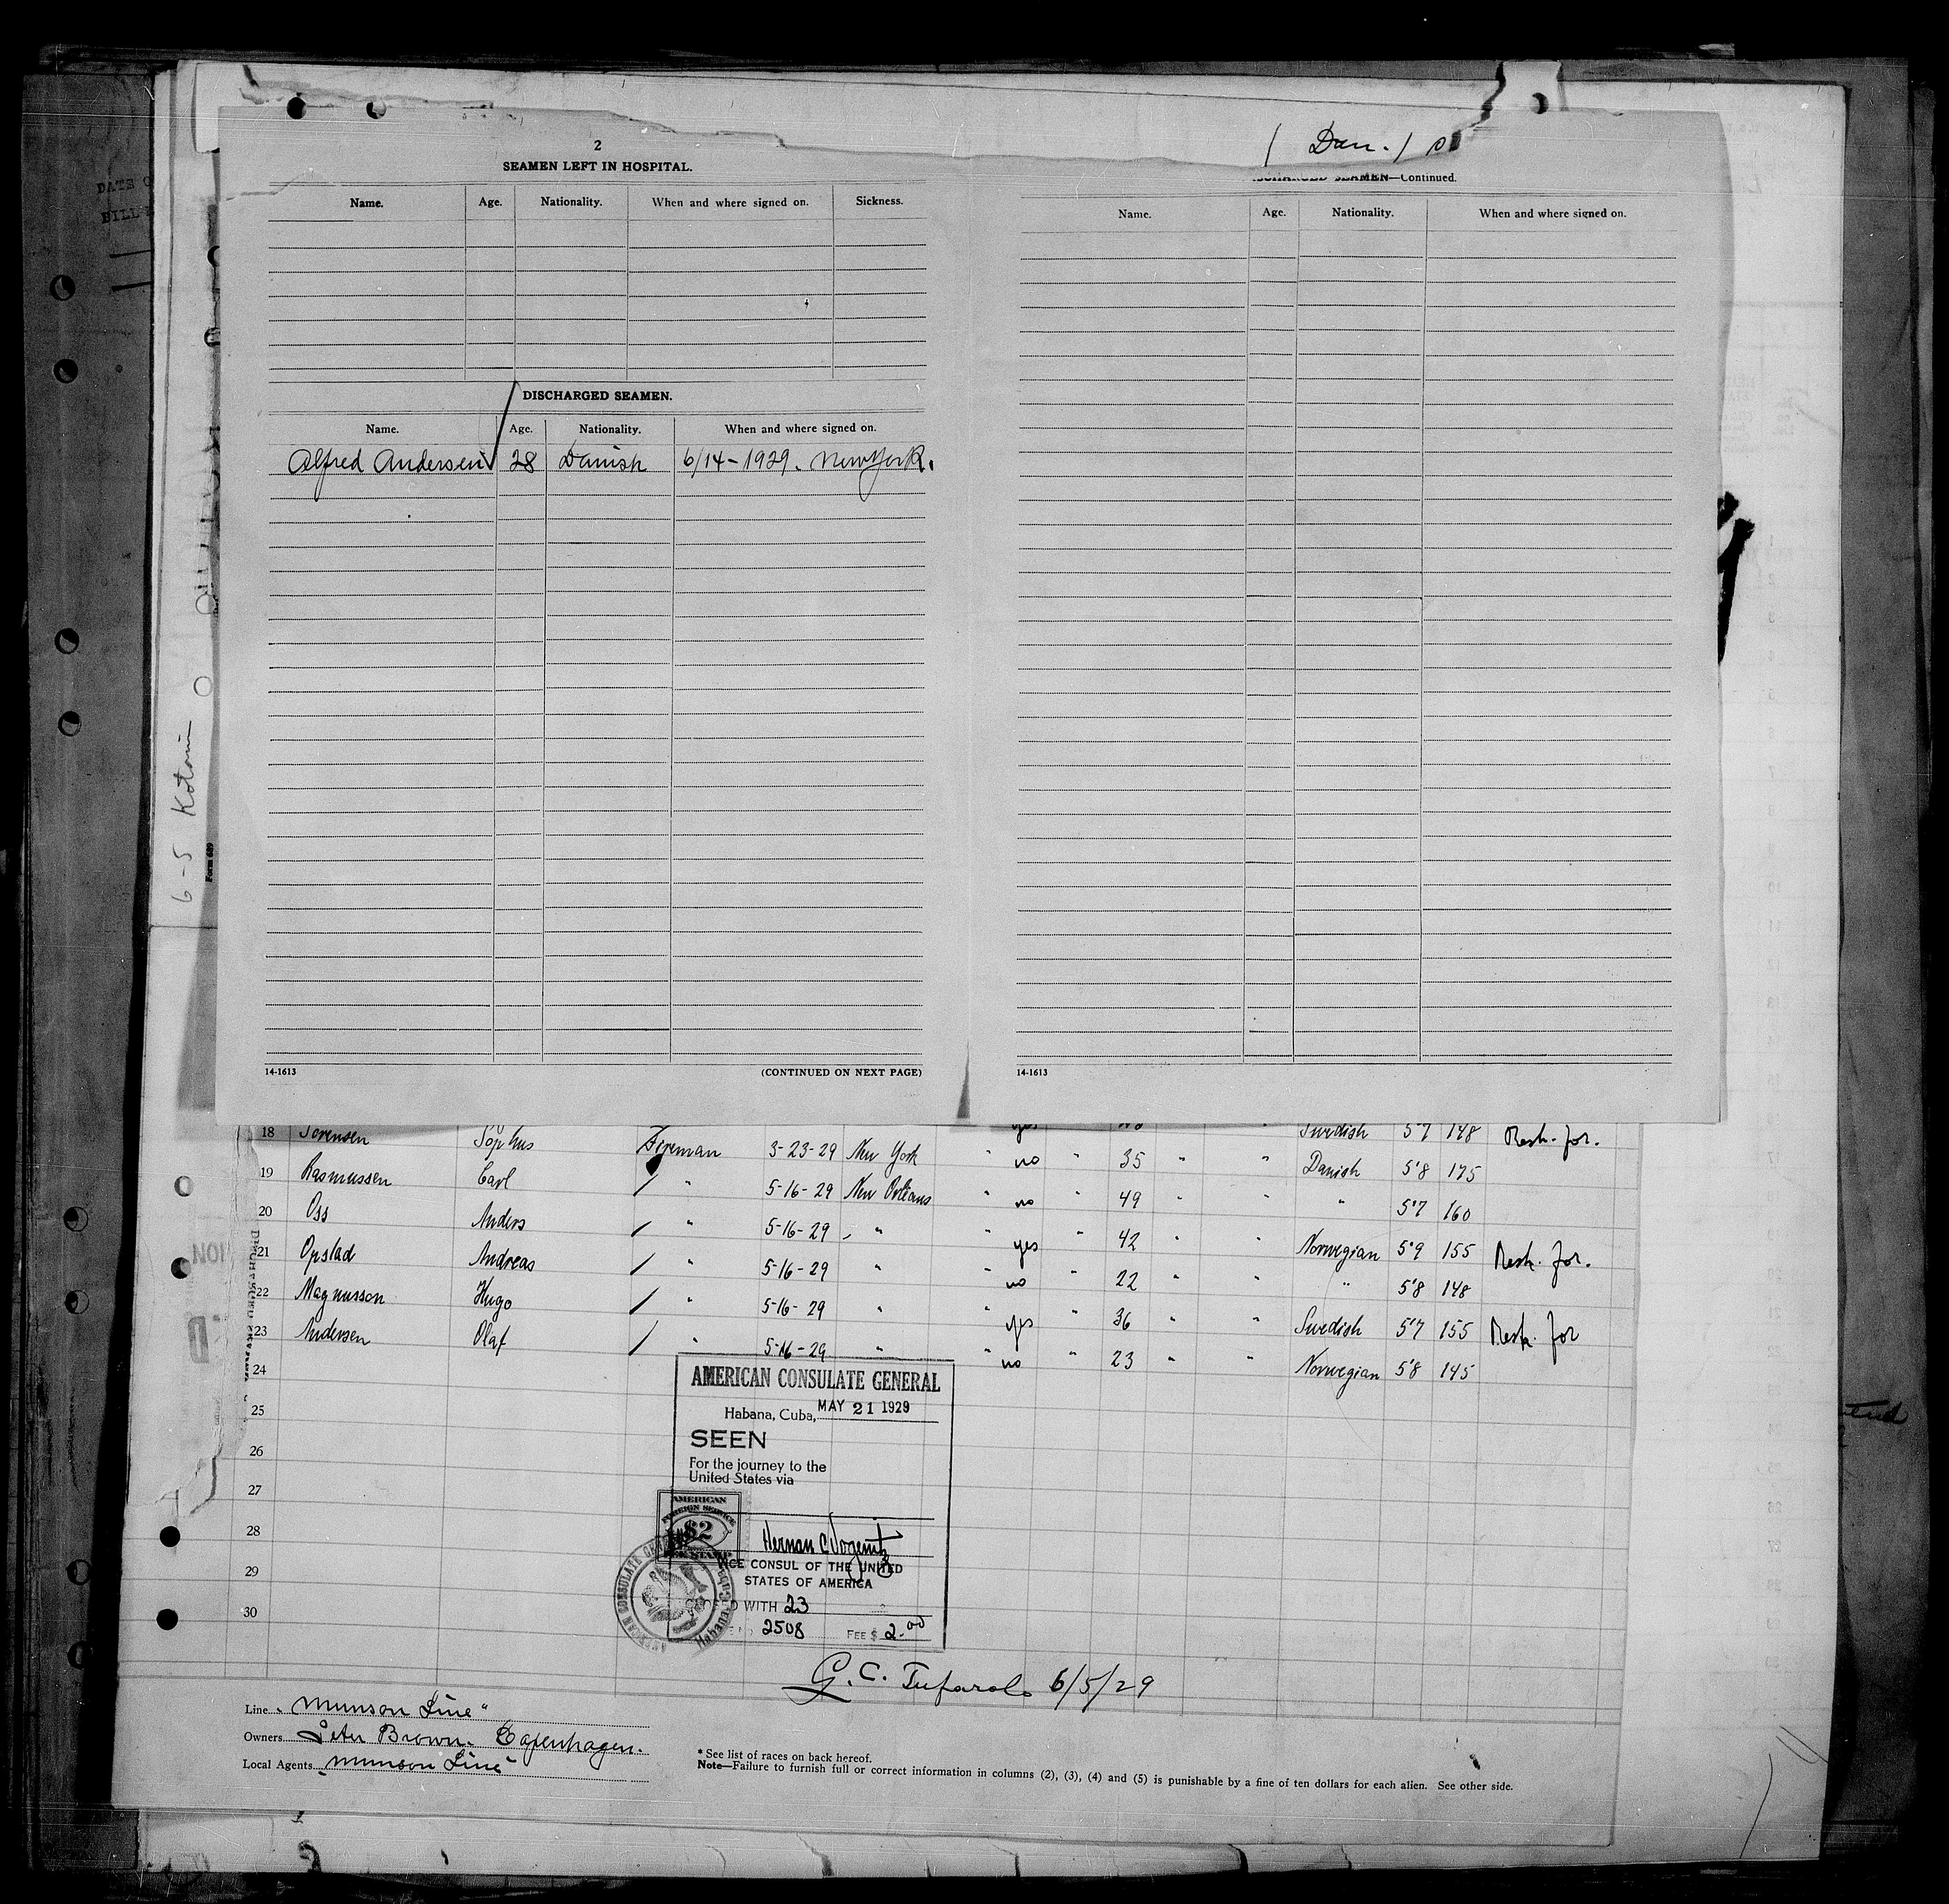 2
SEAMEN LEFT IN HOSPITAL.
Name. Age. Nationality. When and where signed on. Sickness.
DISCHARGED SEAMEN.
Name. Age. Nationality. When and where signed on.
Alfred Andersen 28 Danish 6/14-1929. New York.
14-1613 (CONTINUED ON NEXT PAGE)
1 Dan. 1
SEAMEN—Continued.
Name. Age. Nationality. When and where signed on.
14-1613
6-5
Form 689
Swedish 5'7 148
18 Sorensen Sophus Fireman 3-23-29 New York " no " 35 " " Danish 5'8 175
19 Rasmussen Carl " 5-16-29 New Orleans " no " 49 " " " 5'7 160
20 Oss Anders " 5-16-29 " " yes " 42 " " Norwegian 5'9 155
21 Opstad Andreas " 5-16-29 " " no " 22 " " " 5'8 148
22 Magnusson Hugo " 5-16-29 " " yes " 36 " " Swedish 5'7 155
23 Andersen Olaf " 5-16-29 " " no " 23 " " Norwegian 5'8 145
24
25
26
27
28
29
30
AMERICAN CONSULATE GENERAL
Habana, Cuba, MAY 21 1929
SEEN
For the journey to the
United States via
AMERICAN
FOREIGN SERVICE
$2
FEE STAMP
VICE CONSUL OF THE UNITED
STATES OF AMERICA
WITH 23
2508 FEE $ 2.00
AMERICAN CONSULATE GENERAL
Habana, Cuba
G. C. 6/5/29
Line "Munson Line"
Owners Peter Brown. Copenhagen.
Local Agents "Munson Line"
* See list of races on back hereof.
Note—Failure to furnish full or correct information in columns (2), (3), (4) and (5) is punishable by a fine of ten dollars for each alien. See other side.